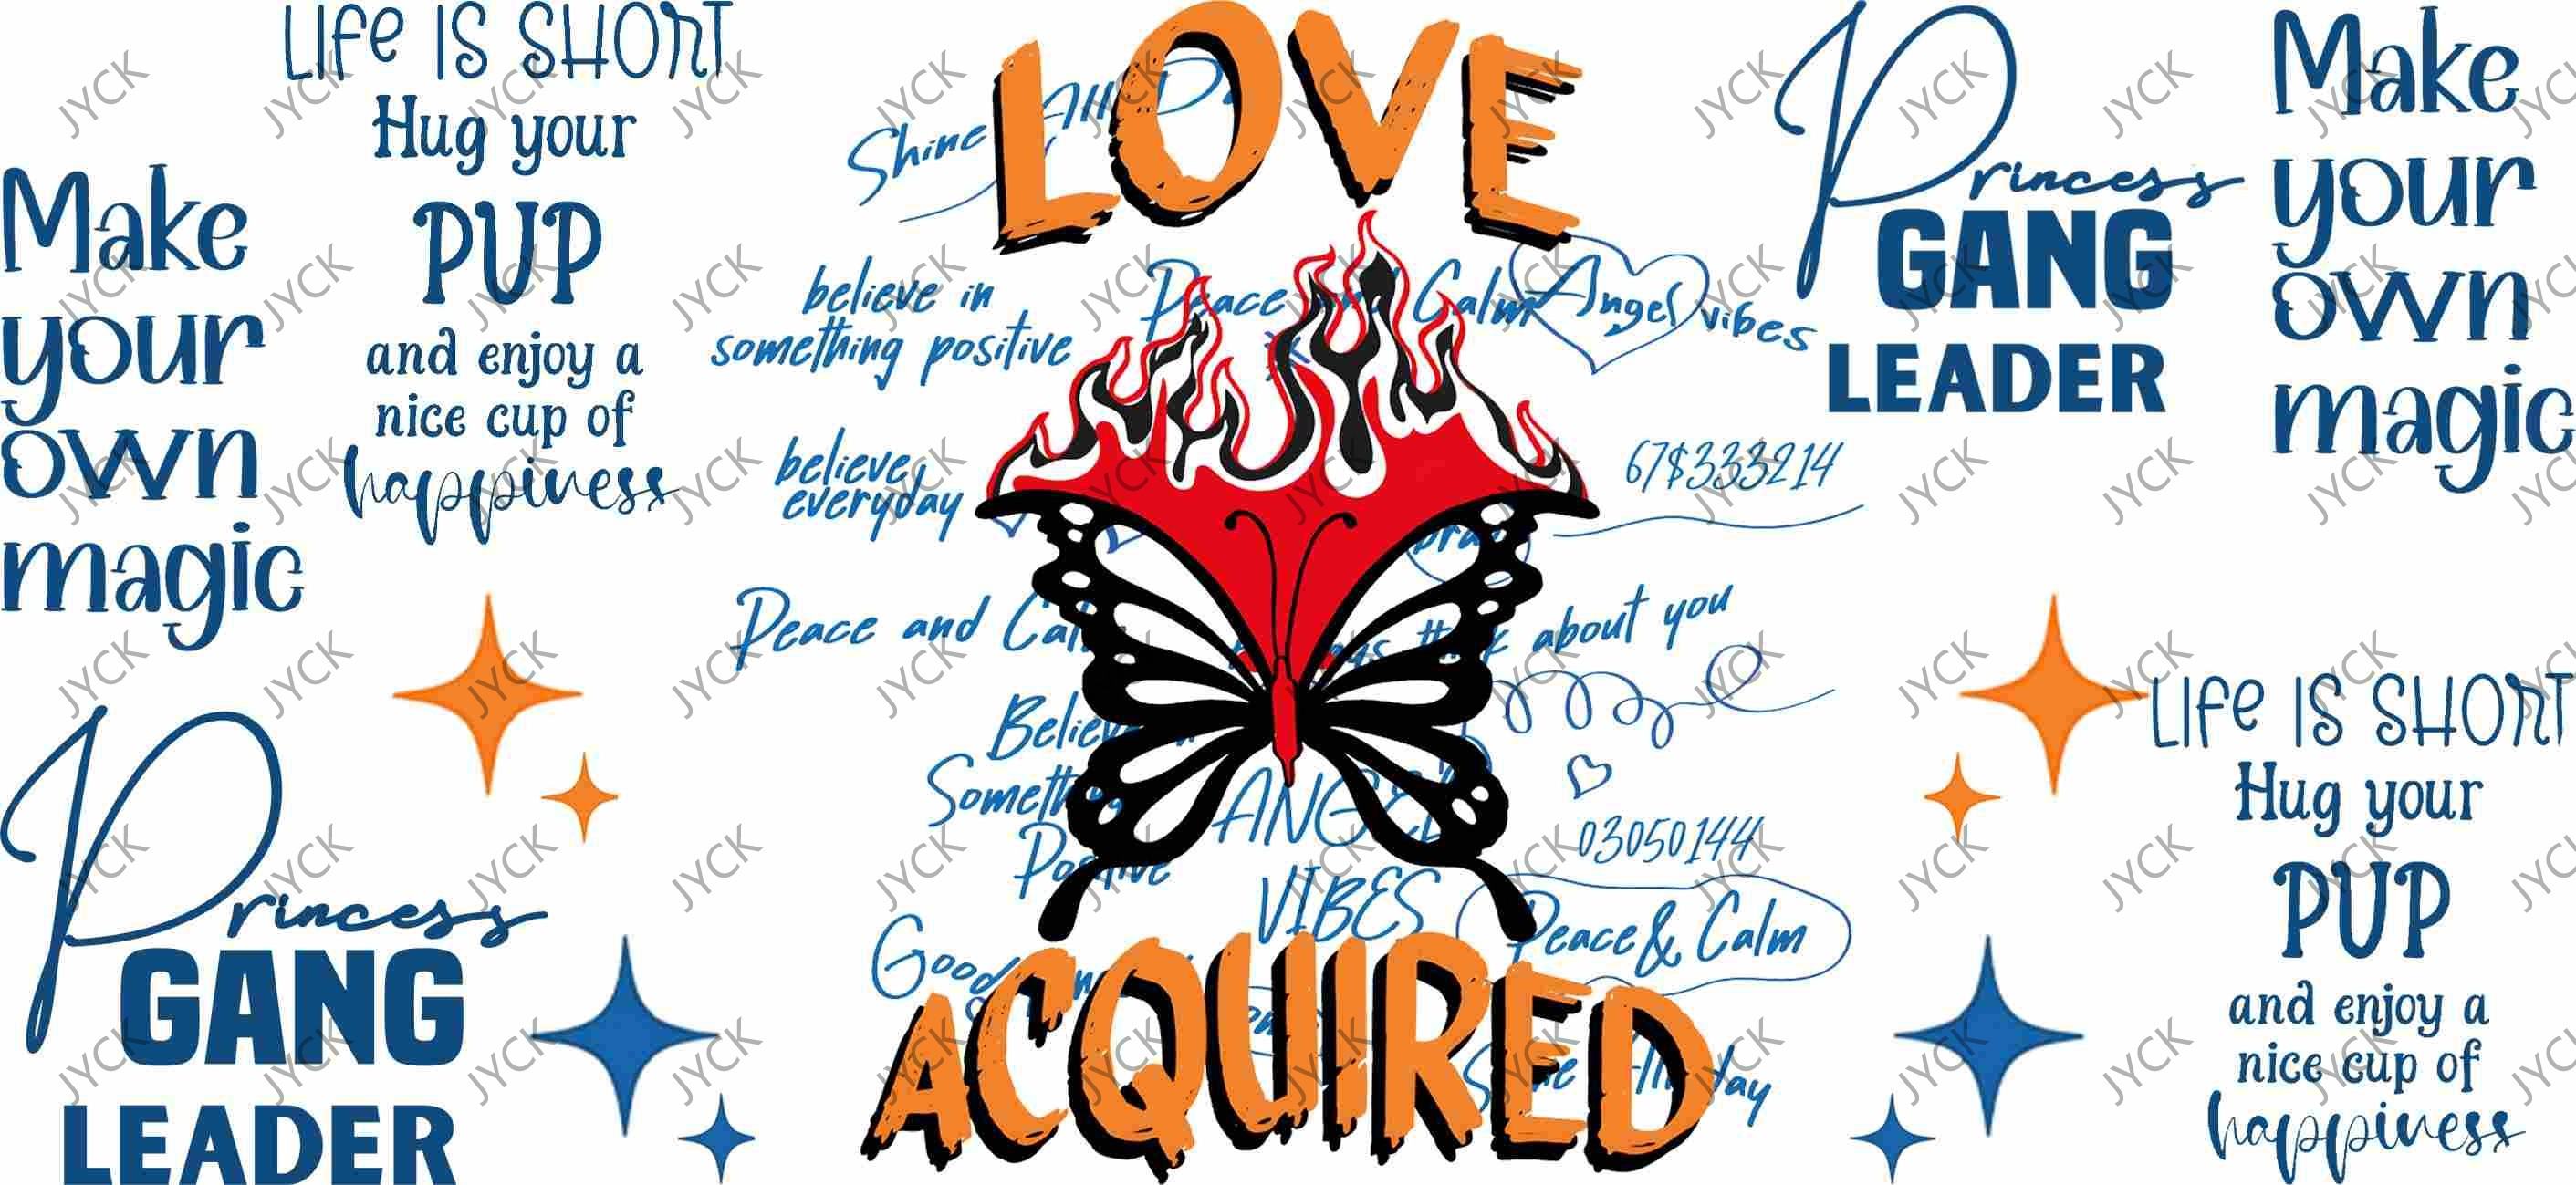 LIFE IS SHORT
Hug your
PUP
and enjoy a
nice cup of
happiness
Make
your
own
magic
Princess
GANG
LEADER
LOVE
Shine All D
believe in
something positive
Peace and Calm
Angel vibes
believe
everyday
67$333214
Peace and Cal
think about you
Believe in
Something
Positive
ANGEL
VIBES
03050144
Peace & Calm
Good
Shine All day
ACQUIRED
Princess
GANG
LEADER
Make
your
own
magic
LIFE IS SHORT
Hug your
PUP
and enjoy a
nice cup of
happiness
JYCK